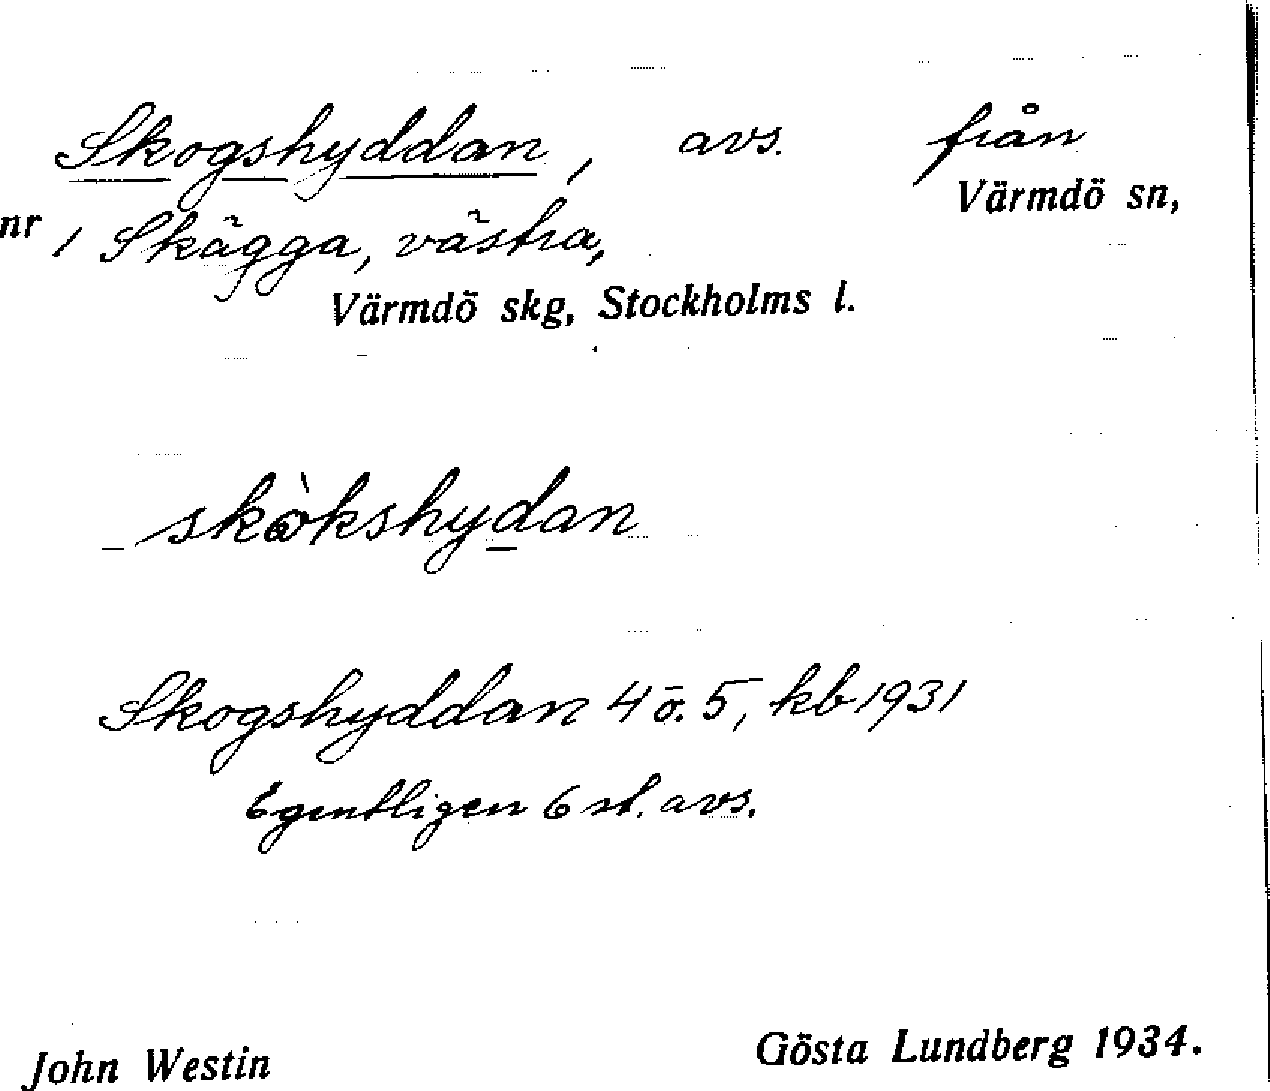 Skogshyddan, avs. från
Värmdö sn,
nr 1 Skägga, västra,
Värmdö skg, Stockholms l.
skòkshydan
Skogshyddan 4 o. 5, kb 1931
Egentligen 6 st. avs.
John Westin Gösta Lundberg 1934.